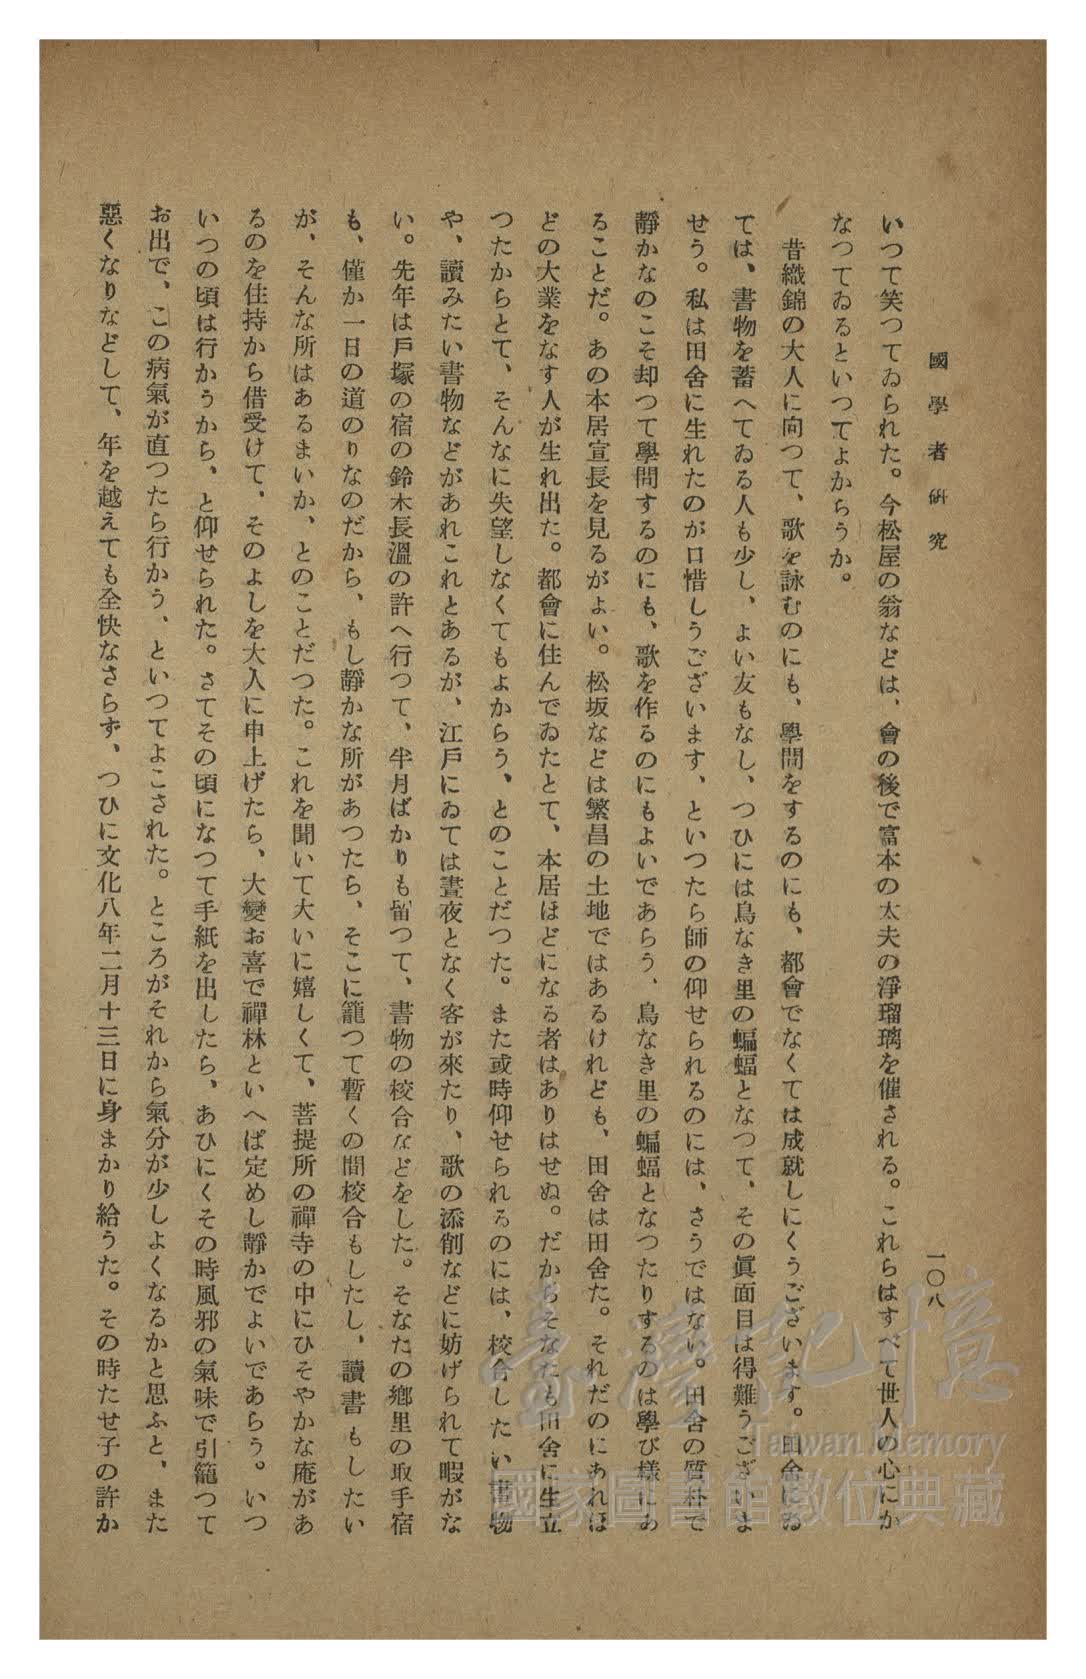 國學者研究
一〇八
いつて笑つてゐられた。今松屋の翁などは、會の後で富本の太夫の淨瑠璃を催される。これらはすべて世人の心にか
なつてゐるといつてよからうか。
昔織錦の大人に向つて、歌を詠むのにも、學問をするのにも、都會でなくては成就しにくうございます。田舍にゐ
ては、書物を蓄へてゐる人も少し、よい友もなし、つひには鳥なき里の蝙蝠となつて、その眞面目は得難うございま
せう。私は田舍に生れたのが口惜しうございます、といつたら師の仰せられるのには、さうではない。田舍の質朴で
靜かなのこそ却つて學問するのにも、歌を作るのにもよいであらう、鳥なき里の蝙蝠となつたりするのは學び樣にあ
ることだ。あの本居宣長を見るがよい。松坂などは繁昌の土地ではあるけれども、田舍は田舍だ。それだのにあれほ
どの大業をなす人が生れ出た。都會に住んでゐたとて、本居ほどになる者はありはせぬ。だからそなたも田舍に生立
つたからとて、そんなに失望しなくてもよからう、とのことだつた。また或時仰せられるのには、校合したい書物
や、讀みたい書物などがあれこれとあるが、江戶にゐては晝夜となく客が來たり、歌の添削などに妨げられて暇がな
い。先年は戶塚の宿の鈴木長溫の許へ行つて、半月ばかりも留つて、書物の校合などをした。そなたの鄕里の取手宿
も、僅か一日の道のりなのだから、もし靜かな所があつたら、そこに籠つて暫くの間校合もしたし、讀書もしたい
が、そんな所はあるまいか、とのことだつた。これを聞いて大いに嬉しくて、菩提所の禪寺の中にひそやかな庵があ
るのを住持から借受けて、そのよしを大人に申上げたら、大變お喜で禪林といへば定めし靜かでよいであらう。いつ
いつの頃は行かうから、と仰せられた。さてその頃になつて手紙を出したら、あひにくその時風邪の氣味で引籠つて
お出で、この病氣が直つたら行かう、といつてよこされた。ところがそれから氣分が少しよくなるかと思ふと、また
惡くなりなどして、年を越えても全快なさらず、つひに文化八年二月十三日に身まかり給うた。その時たせ子の許か
臺灣記憶
Taiwan Memory
國家圖書館數位典藏